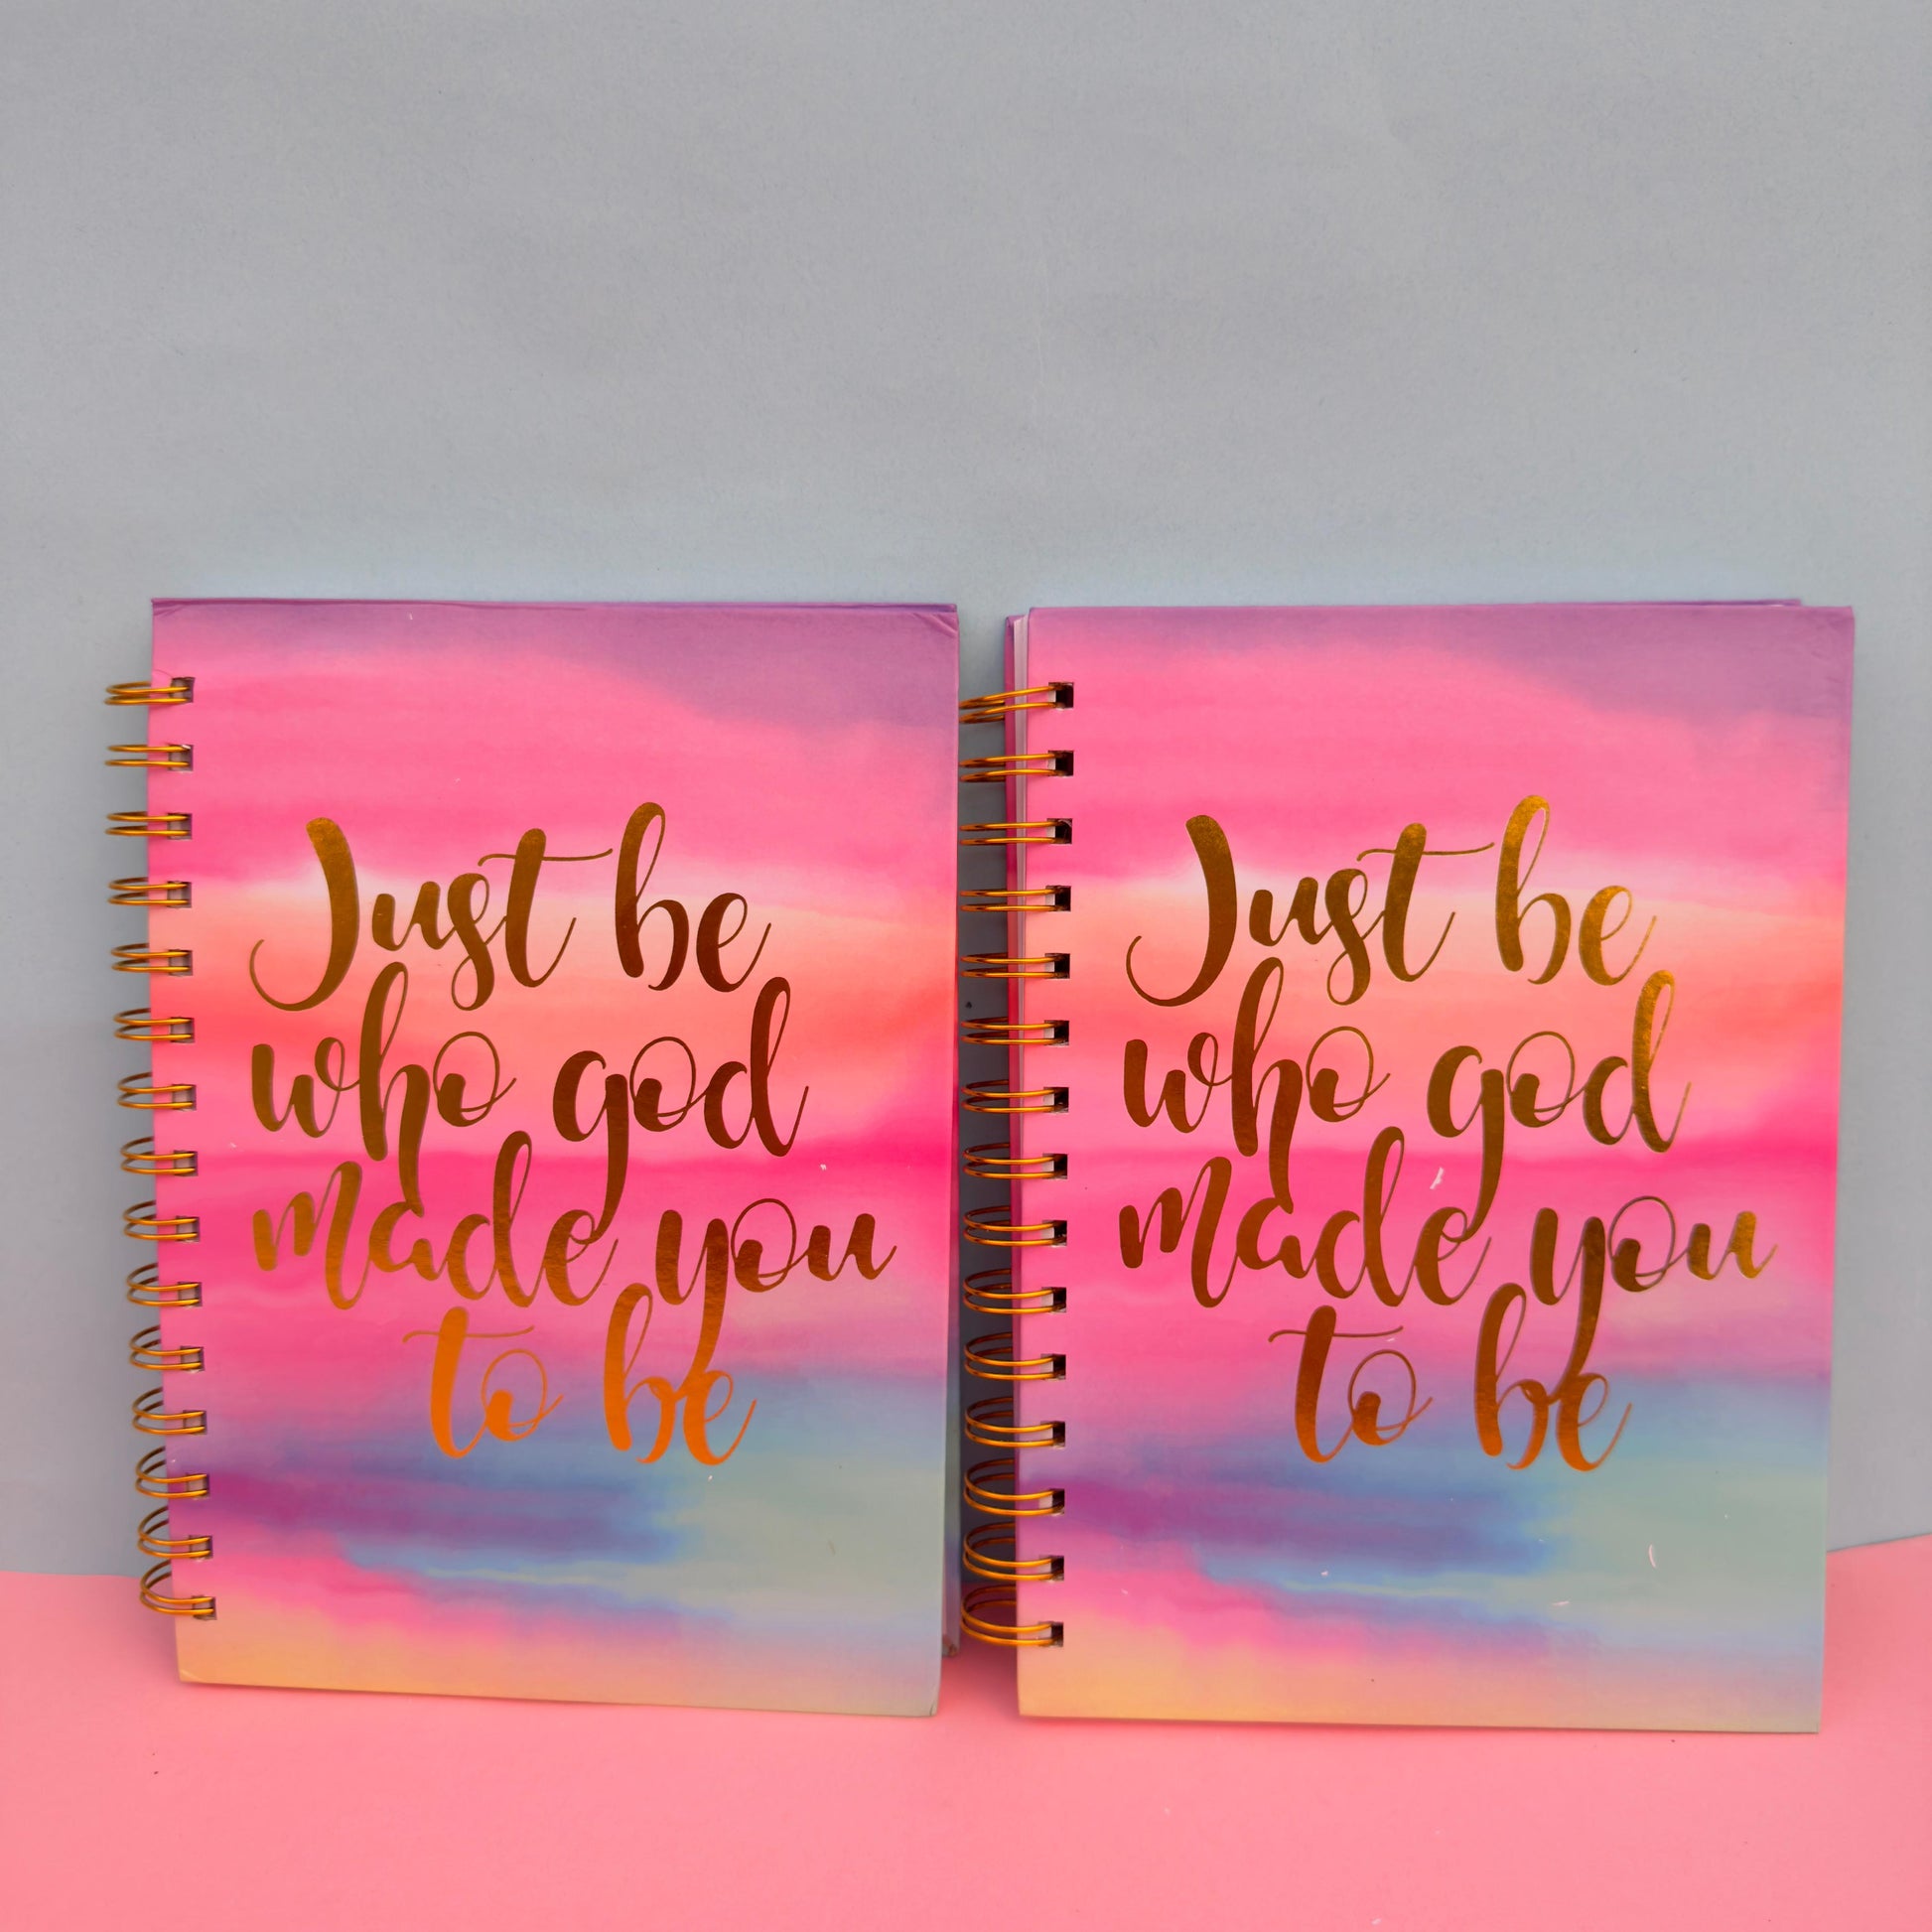 Just be
who god
made you
to be
Just be
who god
made you
to be